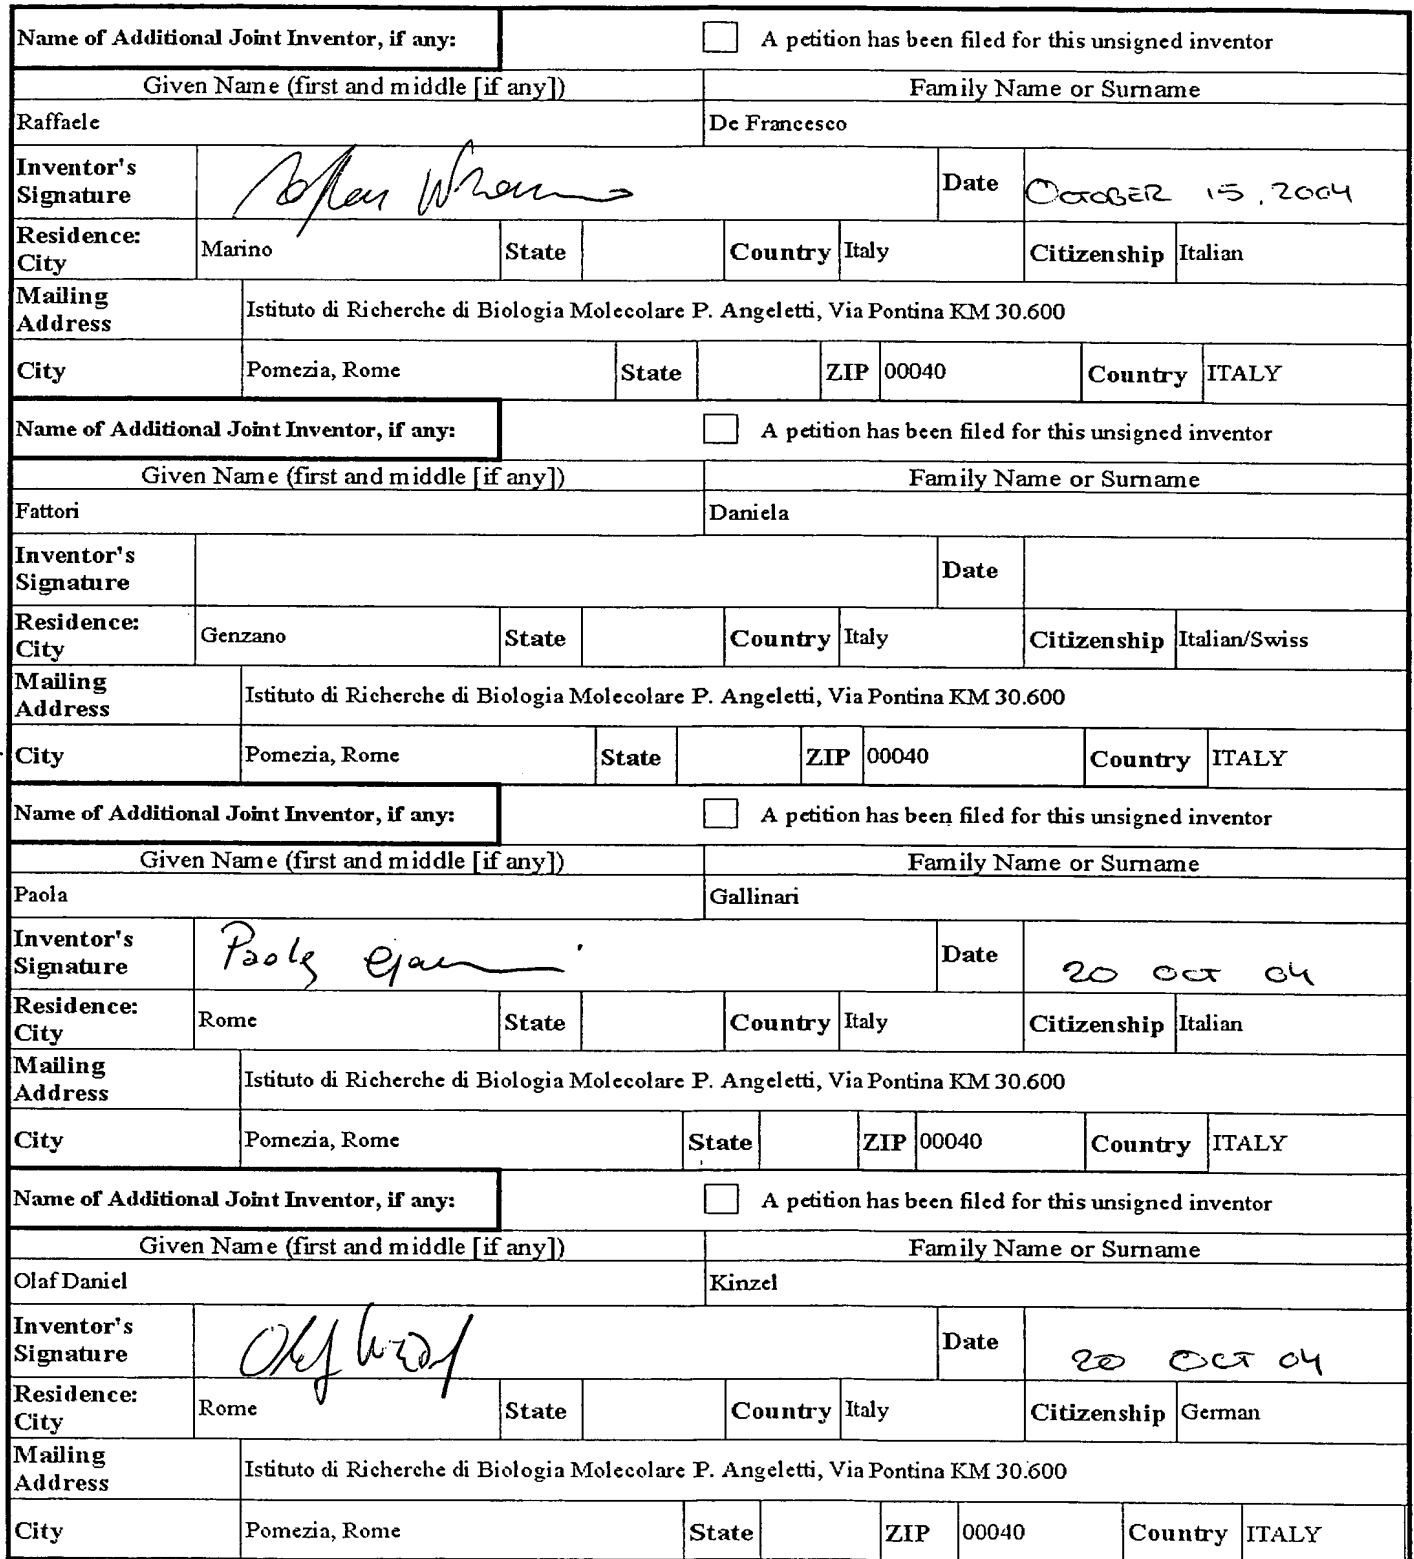 Name of Additional Joint Inventor, if any: A petition has been filed for this unsigned inventor
Given Name (first and middle [if any]) Family Name or Surname
Raffaele De Francesco
Inventor's
Signature Date OCTOBER 15, 2004
Residence:
City Marino State Country Italy Citizenship Italian
Mailing
Address Istituto di Richerche di Biologia Molecolare P. Angeletti, Via Pontina KM 30.600
City Pomezia, Rome State ZIP 00040 Country ITALY
Name of Additional Joint Inventor, if any: A petition has been filed for this unsigned inventor
Given Name (first and middle [if any]) Family Name or Surname
Fattori Daniela
Inventor's
Signature Date
Residence:
City Genzano State Country Italy Citizenship Italian/Swiss
Mailing
Address Istituto di Richerche di Biologia Molecolare P. Angeletti, Via Pontina KM 30.600
City Pomezia, Rome State ZIP 00040 Country ITALY
Name of Additional Joint Inventor, if any: A petition has been filed for this unsigned inventor
Given Name (first and middle [if any]) Family Name or Surname
Paola Gallinari
Inventor's
Signature Paola Date 20 OCT 04
Residence:
City Rome State Country Italy Citizenship Italian
Mailing
Address Istituto di Richerche di Biologia Molecolare P. Angeletti, Via Pontina KM 30.600
City Pomezia, Rome State ZIP 00040 Country ITALY
Name of Additional Joint Inventor, if any: A petition has been filed for this unsigned inventor
Given Name (first and middle [if any]) Family Name or Surname
Olaf Daniel Kinzel
Inventor's
Signature Olaf Date 20 OCT 04
Residence:
City Rome State Country Italy Citizenship German
Mailing
Address Istituto di Richerche di Biologia Molecolare P. Angeletti, Via Pontina KM 30.600
City Pomezia, Rome State ZIP 00040 Country ITALY